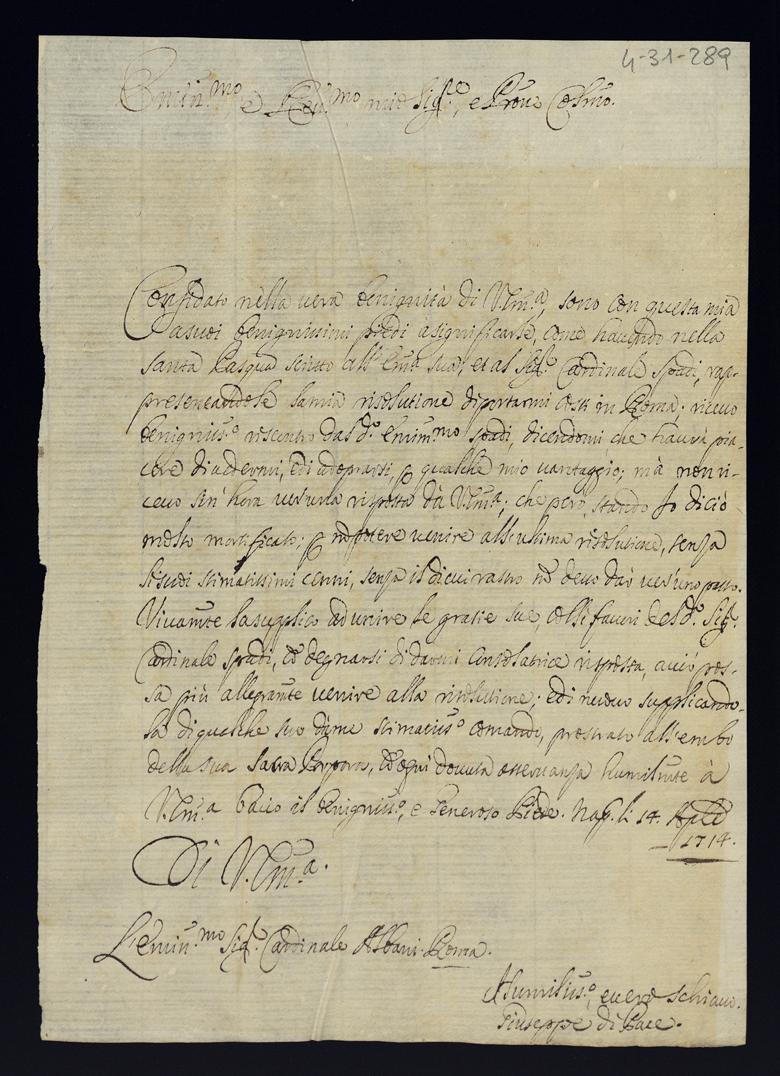 4-31-289
Emin.mo e Rev.mo mio Sig.re, e Prone Colmo.
Confidato nella vera benignità di V.Em.a, sono con questa mia
a suoi benignissimi piedi a significarle, come havendo nella
santa Pasqua scritto all'Em.a sua, et al Sig.r Cardinale Spadi, rap-
presentandole la mia risolutione di portarmi costì in Roma; ricevo
benignis.o riscontro dal d.o Emin.mo Spadi, dicendomi che havrà pia-
cere di vedermi, e di adoprarsi, p qualche mio vantaggio; mà non ri-
cevo sin hora veruna risposta da V.Em.a; che però, stando Io di ciò
molto mortificato; p no potere venire all'ultima risolutione, senza
li suoi stimatissimi cenni, senza il di cui rastro no devo dar ver'uno passo.
Vivamte la supplico ad unire le gratie sue, colli favori del d.o Sig.r
Cardinale Spadi, co degnarsi di darmi consolatrice risposta, acciò pos-
sa più allegramte venire alla risolutione; e di nuovo supplicando-
la di qualche suo à me stimatiss.o comando, prostrato all'embo
della sua Sacra Porpora, co ogni dovuta osservanza humilmte à
V.Em.a bacio il benigniss.o, e Generoso Piede. Nap.li 14. Aple
1714.
Di V.Em.a.
L'Emin.mo Sig.r Cardinale Albani. Roma.
Humiliss.o, e vero schiavo.
Giuseppe di Pace.